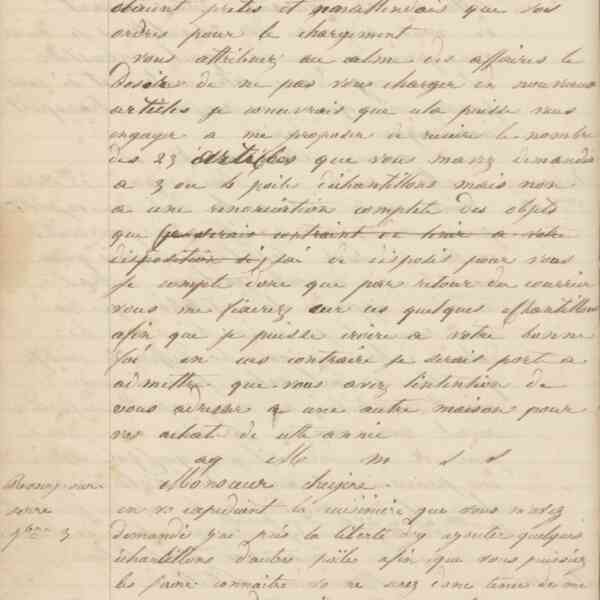 étaient prêtes et n'attendais que vos
ordres pour le chargement
vous attribuez au calme des affaires le
Desir de ne pas vous charger en nouveaux
articles je concevrais que cela puisse vous
engager a me proposer de reduire le nombre
des 23 articles que vous m'avez demandés
a 3 ou 4 poêles échantillons mais non
a une renonciation complete des objets
que (je serais contraint de tenir a votre
disposition si) j'ai de disposés pour vous
je compte donc que par retour du courrier
vous me fixerez sur ces quelques échantillons
afin que je puisse croire a votre bonne
foi en cas contraire je serais porté a
admettre que vous avez l'intention de
vous adresser a une autre maison pour
vos achats de cette année
ag M m s s
Monsieur
sur
serre
9bre 3
en vs expediant la cuisinière que vous m'avez
demandée j'ai pris la liberté d'y ajouter quelques
échantillons d'autres poêles afin que vous puissiez
les faire connaitre vs ne serez donc tenu de me